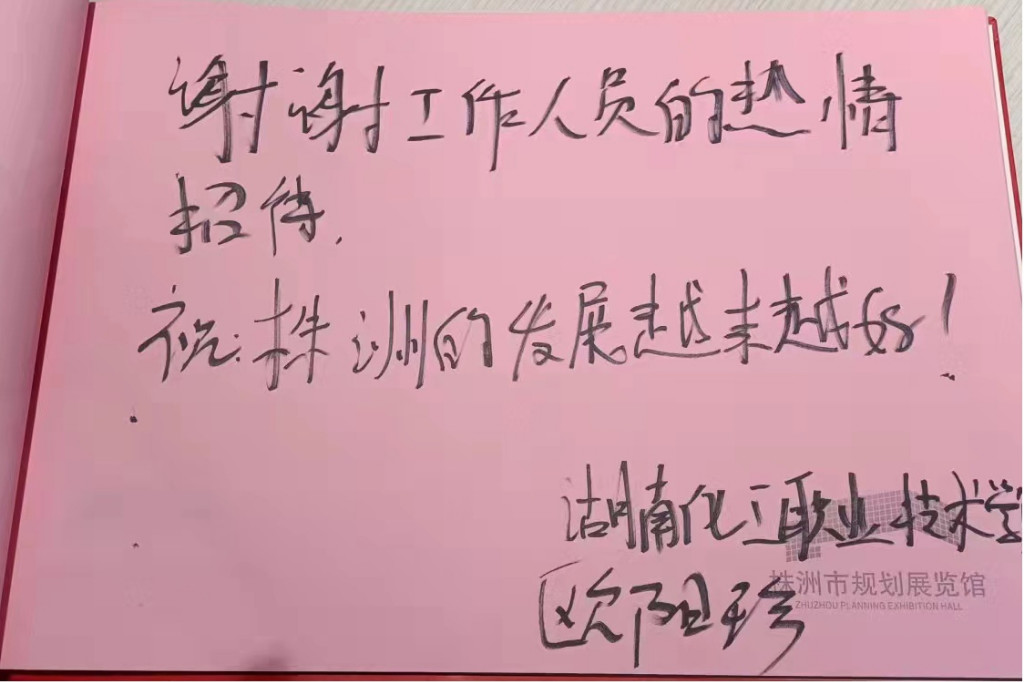 谢谢工作人员的热情
招待.
祝:株洲的发展越来越好!
湖南化工职业技术学
欧阳珍
株洲市规划展览馆
ZHUZHOU PLANNING EXHIBITION HALL